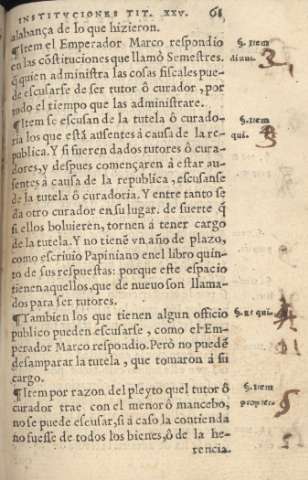 INSTITVCIONES TIT. XXV. 61
alabança de lo que hizieron.
¶Item el Emperador Marco respondio
en las cõstituciones que llamò Semestres.
q̃ quien administra las cosas fiscales pue-
de escusarse de ser tutor ô curador, por
todo el tiempo que las administrare.
¶Item se escusan de la tutela ô curado-
ria los que está ausentes à causa de la re-
publica. Y si fueren dados tutores ô cura-
dores, y despues començaren à estar au-
sentes à causa de la republica, escusanse
de la tutela ô curadoria. Y entre tanto se
da otro curador en su lugar. de suerte q̃
si ellos boluieren, tornen á tener cargo
de la tutela. Y no tienē vn año de plazo,
como escriuio Papiniano en el libro quin-
to de sus respuestas: porque este espacio
tienen aquellos, que de nuevo son llama-
dos para ser tutores.
¶Tambien los que tienen algun officio
publico pueden escusarse, como el Em-
perador Marco respondio. Pero no puedē
desamparar la tutela, que tomaron á su
cargo.
¶Item por razon del pleyto quel tutor ô
curador trae con el menor ô mancebo,
no se puede escusar, si à caso la contienda
no fuesse de todos los bienes, ô de la he-
rencia.
§. item
§. item
qui.
§. et qui
§. item
propter.